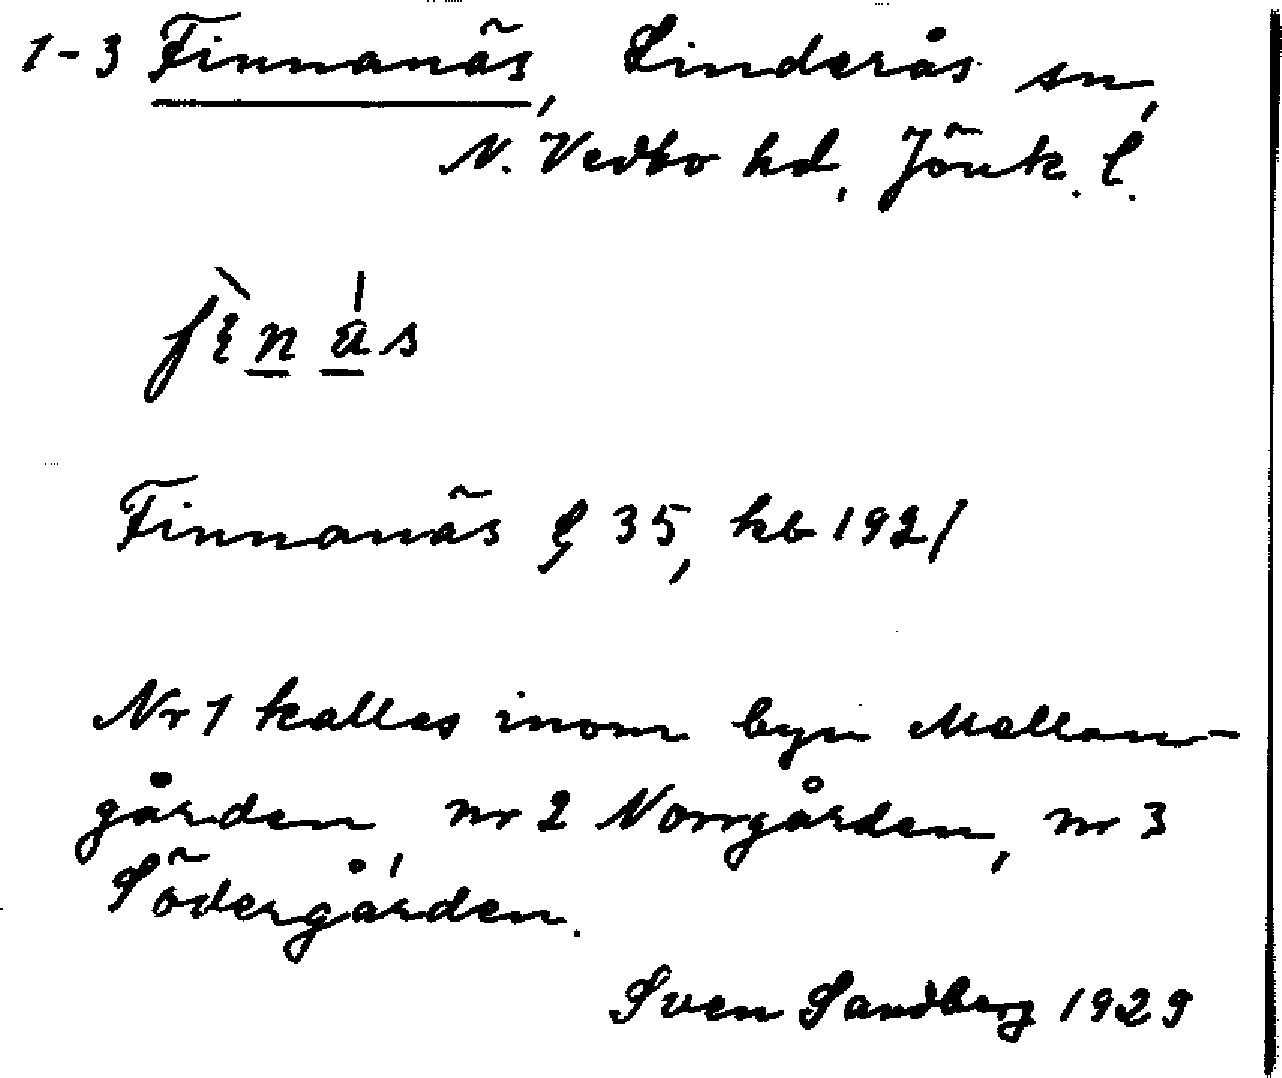 1-3 Finnanäs, Linderås sn,
N. Vedbo hd, Jönk. l.
Finnanäs § 35, kb 1921
Nr 1 kallas inom byn Mellan-
gården, nr 2 Norrgården, nr 3
Södergården.
Sven Sandberg 1929